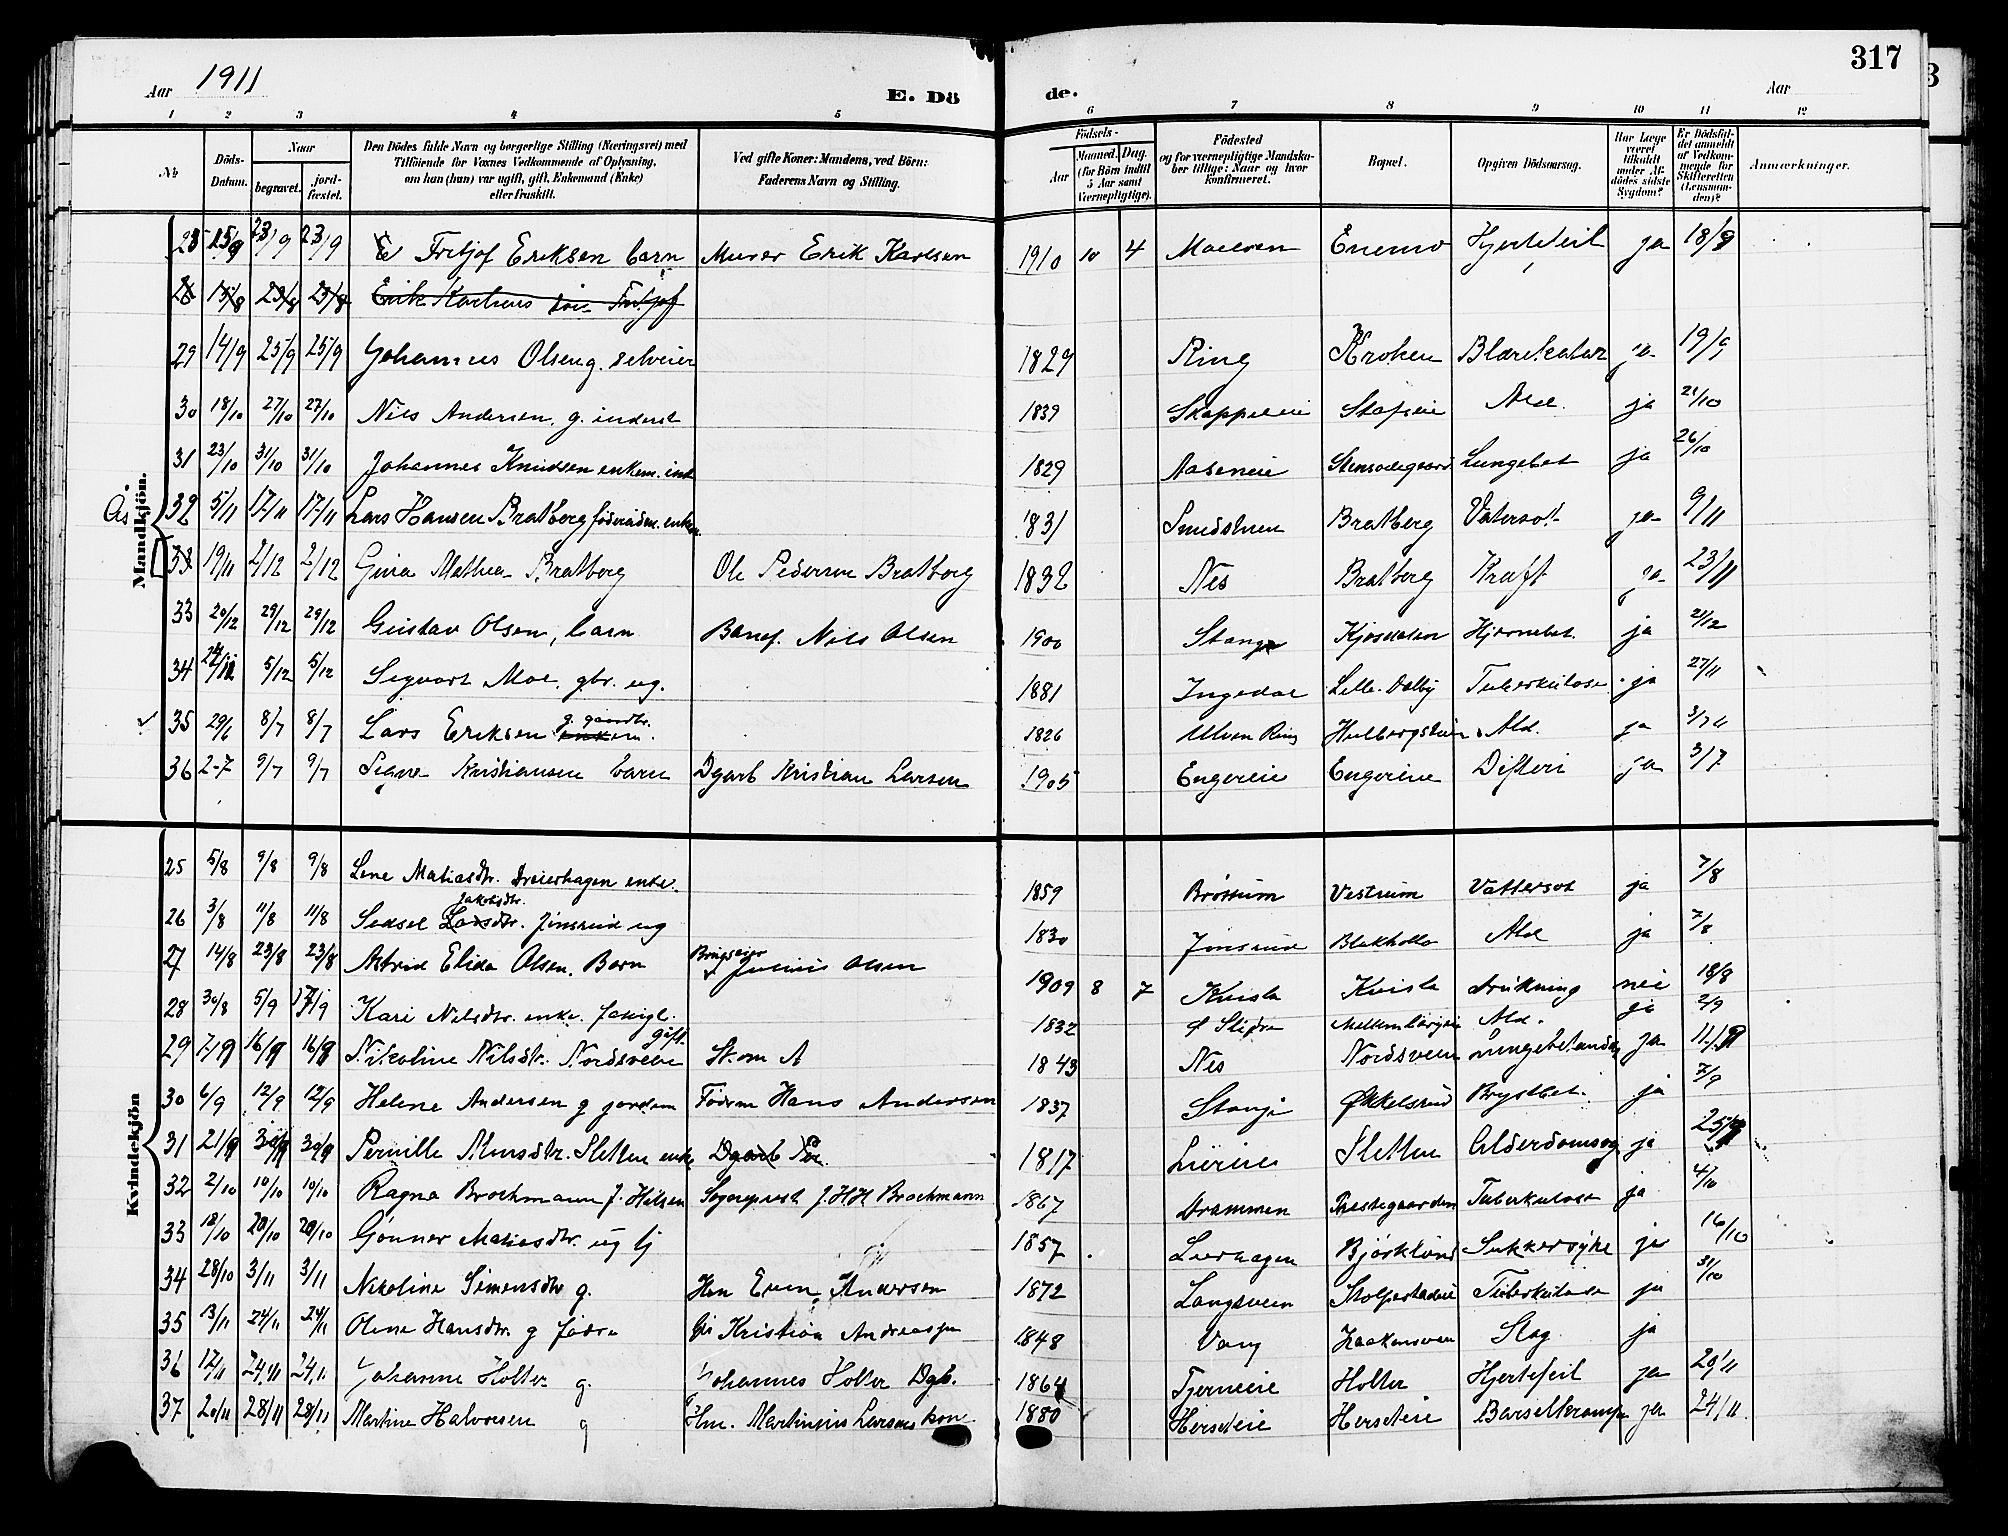 317
Aar 1911 E. Dö de. Aar
1 2 3 4 5 6 7 8 9 10 11 12
№ Döds-Datum. Naar begravet. jord-fæstet. Den Dödes fulde Navn og borgerlige Stilling (Næringsvei) med Tilföiende for Voxnes Vedkommende af Oplysning, om han (hun) var ugift, gift, Enkemand (Enke) eller fraskilt. Ved gifte Koner: Mandens, ved Börn: Faderens Navn og Stilling. Födsels- Aar Maaned. Dag. (for Börn indtil 5 Aar samt Værnepligtige). Födested og for værnepligtige Mandskaber tillige: Naar og hvor konfirmeret. Bopæl. Opgiven Dödsaarsag. Har Læge været tilkaldt under Afdödes sidste Sygdom? Er Dödsfaldet anmeldt af Vedkommende for Skifteretten (Lensmanden)? Anmærkninger.
Mandkjön.
28 15/9 23/9 23/9 Fritjof Eriksen barn Murer Erik Karlsen 1910 10 4 Moelven Enemo Hjertefeil ja 18/9
28 13/8 23/8 23/8 Erik Karlsens Fritjof
29 14/9 25/9 25/9 Johannes Olsen g. selveier 1829 Ring Kroken Blærekatar ja 19/9
30 18/10 27/10 27/10 Nils Andersen. g. inderst 1839 Skappeleie Ald. ja 21/10
31 23/10 31/10 31/10 Johannes Knudsen enkem. ind. 1829 Aaseneie Lungebet ja 26/10
As 32 5/11 17/11 17/11 Lars Hansen Bratberg föderådm. enkem. 1831 Smedstuen Bratberg Vatersot ja 9/11
33 19/11 2/12 2/12 Gina Mathea Bratberg Ole Pedersen Bratberg 1832 Nes Bratberg Kræft ja 23/11
33 20/12 29/12 29/12 Gustav Olsen, barn Nils Olsen 1900 Stange Hjernebet. ja 21/12
34 5/12 5/12 Sigvart Moe, gbr. ug. 1881 Ingedal Lille-Dalby Tuberkulose ja 27/11
35 29/6 8/7 8/7 Lars Eriksen enkem. g. gaardbr. 1826 Ulven Ring Ald. ja
36 2-7 9/7 9/7 Signe Kristiansen barn Dgarb Kristian Larsen 1905 Engereie Engereie Difteri ja 3/7
Kvindekjön
25 5/8 9/8 9/8 Lene Matiasdtr. Dreierhagen enke. 1859 Brøttum Vestrum Vattersot ja 7/8
26 3/8 11/8 11/8 Sedsel Larsdtr. Jakobsdtr. Jinsrud ug 1830 Jinsrud Blakholla Ald ja 7/8
27 14/8 23/8 23/8 Astrid Elida Olsen. Barn Julius Olsen 1909 8 7 Kvisla Kvisla drukning nei 18/8
28 30/8 5/9 Kari Nilsdtr. enke. fattigl. 1832 Ø Slidre Ald. ja 2/9
29 7/9 16/9 16/9 Nikoline Nilsdtr. Nordsveen gift. St. om A 1843 Nes Nordsveen ja 11/9
30 6/9 12/9 12/9 Helene Andersen g jordem Föderm Hans Andersen 1837 Stange Økkelsrud Brystbet. ja 7/9
31 21/9 30/9 30/9 Pernille Monsdtr. Sletten enke Dgarb Per. 1817 Liereie Sletten Alderdomssvag ja
32 2/10 10/10 10/10 Ragna Brochmann f. Hilsen Sogneprest J. HH Brochmann 1867 Drammen Prestegaarden Tuberkulose ja 4/10
33 12/10 20/10 20/10 Gønner Matiasdtr. ug tj 1857 Lierhagen Bjørklund Sukkersyke ja 16/10
34 28/10 3/11 3/11 Nikoline Simensdtr g. Hm Even Andersen 1872 Langsveen Stolpestadeie Tuberkulose ja 31/10
35 13/11 24/11 24/11 Olene Hansdtr. g födr. Kristian Andreassen 1848 Vang Haakensveen Slag ja
36 17/11 24/11 24/11 Johanne Holter g. Johannes Holter Dgb. 1864 Tjerneeie Holter Hjertefeil ja 29/11
37 20/11 28/11 28/11 Martine Halvorsen g Hm. Martinius Larsens kone 1880 Herseteie Herseteie Barselkrampe ja 24/11